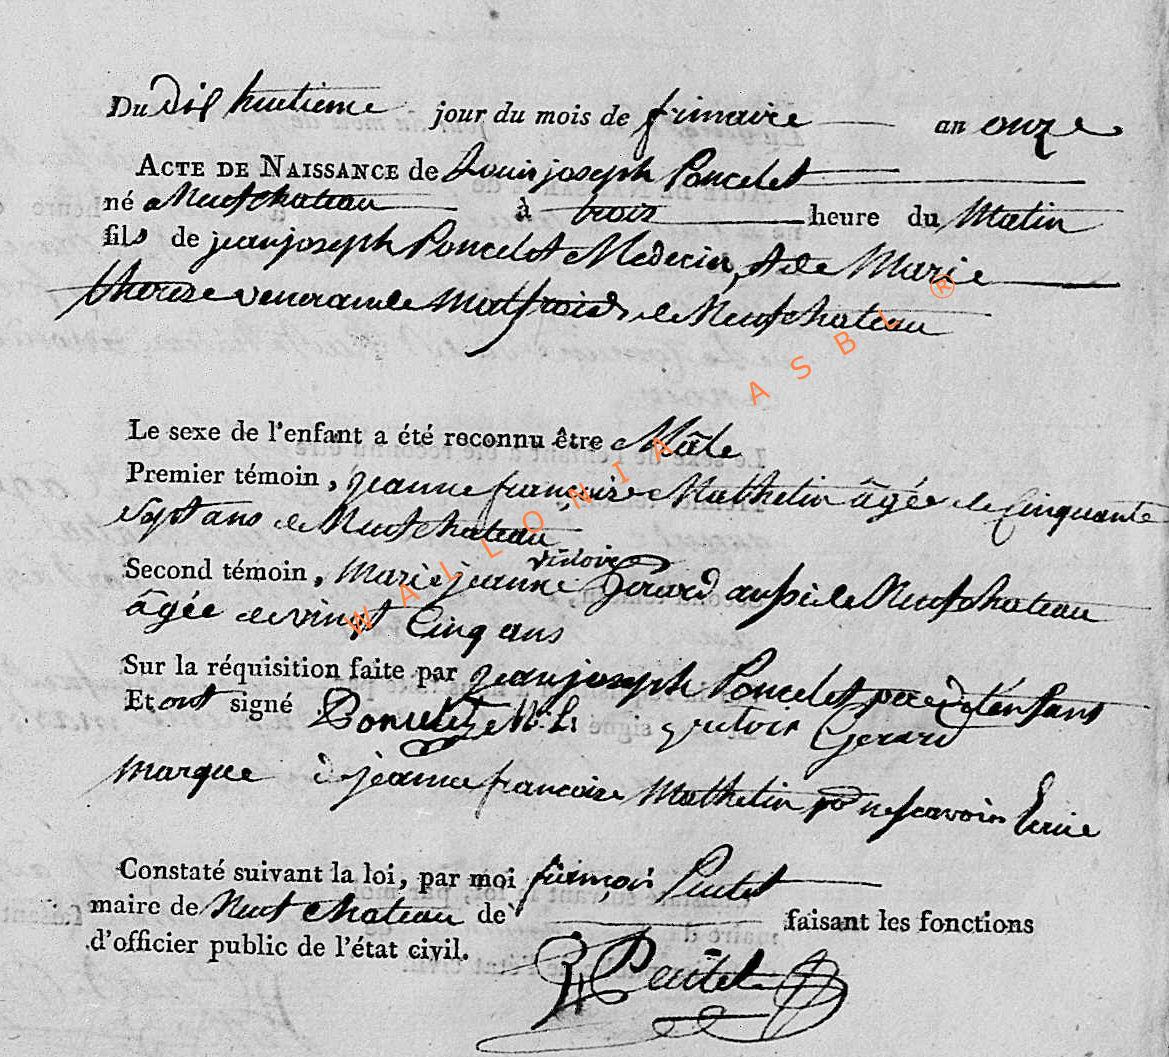 Du dix huitieme jour du mois de frimaire an onze
ACTE DE NAISSANCE de Louis joseph Poncelet
né a Neufchateau à trois heure du Matin
fils de jean joseph Poncelet Medecin, et de Marie
therese venerande Matfroid de Neufchateau
Le sexe de l'enfant a été reconnu être Mâle
Premier témoin, jeanne françoise Mathelin âgée de Cinquante
sept ans de Neufchateau
victoire
Second témoin, Marie jeanne Gerard aussi de Neufchateau
âgée de vingt Cinq ans
Sur la réquisition faite par jean joseph Poncelet pere de l'enfant
Et ont signé Poncelet victoir Gerard
marque de jeanne francoise Mathelin pour ne scavoir Ecrire
Constaté suivant la loi, par moi françois Pautel
maire de Neufchateau de faisant les fonctions
d'officier public de l'état civil.
Pautel
WALLONIA ASBL ®